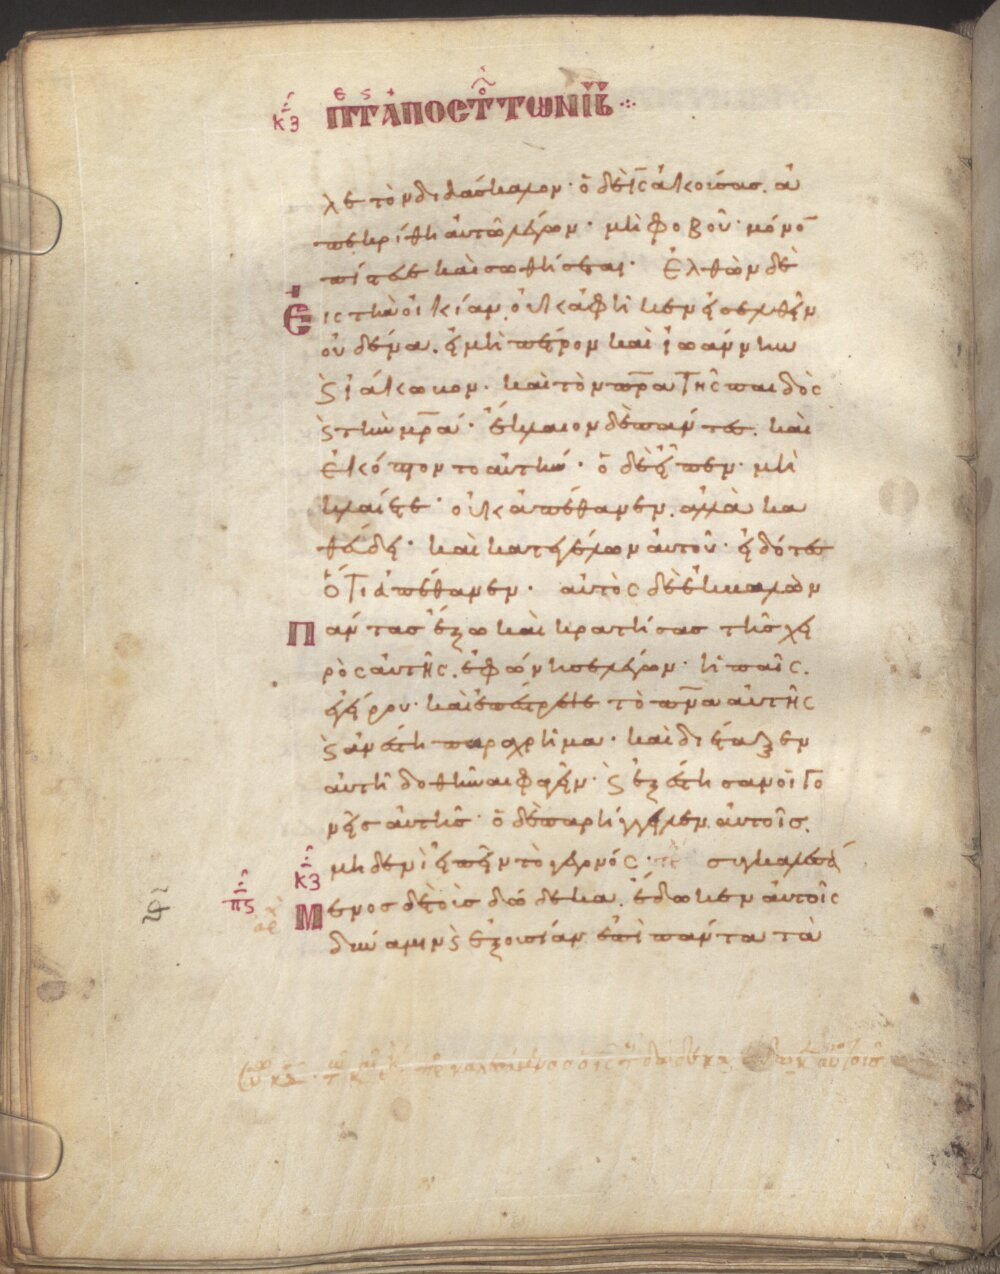 κζ π τ αποστ των ιβ
λε τὸν διδάσκαλον· ὁ δὲ ις ἀκοίσας, ἀ
πεκρίθη ἀυτῶ λέγων· μὴ φοβοῦ· μόνο
πίστευε καὶ σωθήσεται· Ἐλθὼν δὲ
Εις τὴν οἰκίαν, οὐκ ἀφῆκεν ἐισελθεῖν
οὐδένα, ἐι μὴ πέτρον καὶ ἰωάννην
ϛ ϊάκωβον· καὶ τὸν πρα τῆς παιδὸς
ϛ τὴν μρα· ἔκλαιον δὲ πάντες, καὶ
ἐκόπτοντο ἀυτήν· ὁ δὲ εἶπεν· μὴ
κλαίετε· οὐκ ἀπέθανεν, ἀλλὰ κα
θεύδει· καὶ κατεγέλων ἀυτοῦ· ἐιδότες
ὅτι ἀπέθανεν· αὐτὸς δὲ ἐκβαλὼν
Πάντας ἔξω καὶ κρατήσας τῆς χει
ρὸς αὐτῆς, ἐφώνησε λέγων· ἡ παῖς,
ἐγείρου· καὶ ἐπέστρεψε τὸ πνα ἀυτῆς
ϛ ἀνέστη παραχρῆμα· καὶ διέταξεν
ἀυτῆ δοθῆναι φαγεῖν· ϛ ἐξέστησαν οἱ γο
νεῖς ἀυτῆς· ὁ δὲ παρήγγειλεν ἀυτοῖς,
μηδενὶ εἰπεῖν τὸ γεγονός· συγκαλεσά
κζ
πϛ
Μενος δὲ τοὺς δώδεκα, ἔδωκεν ἀυτοῖς
δύναμιν ϛ ἐξουσίαν ἐπὶ πάντα τὰ